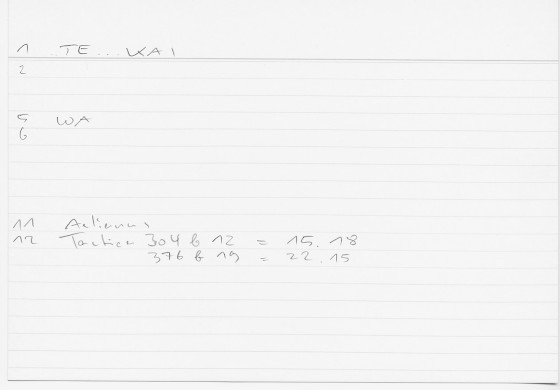 1 TE... KAI
2
5 WA
6
11 Aelianus
12 Tactica 304 b 12 = 15.18
376 b 19 = 22.15